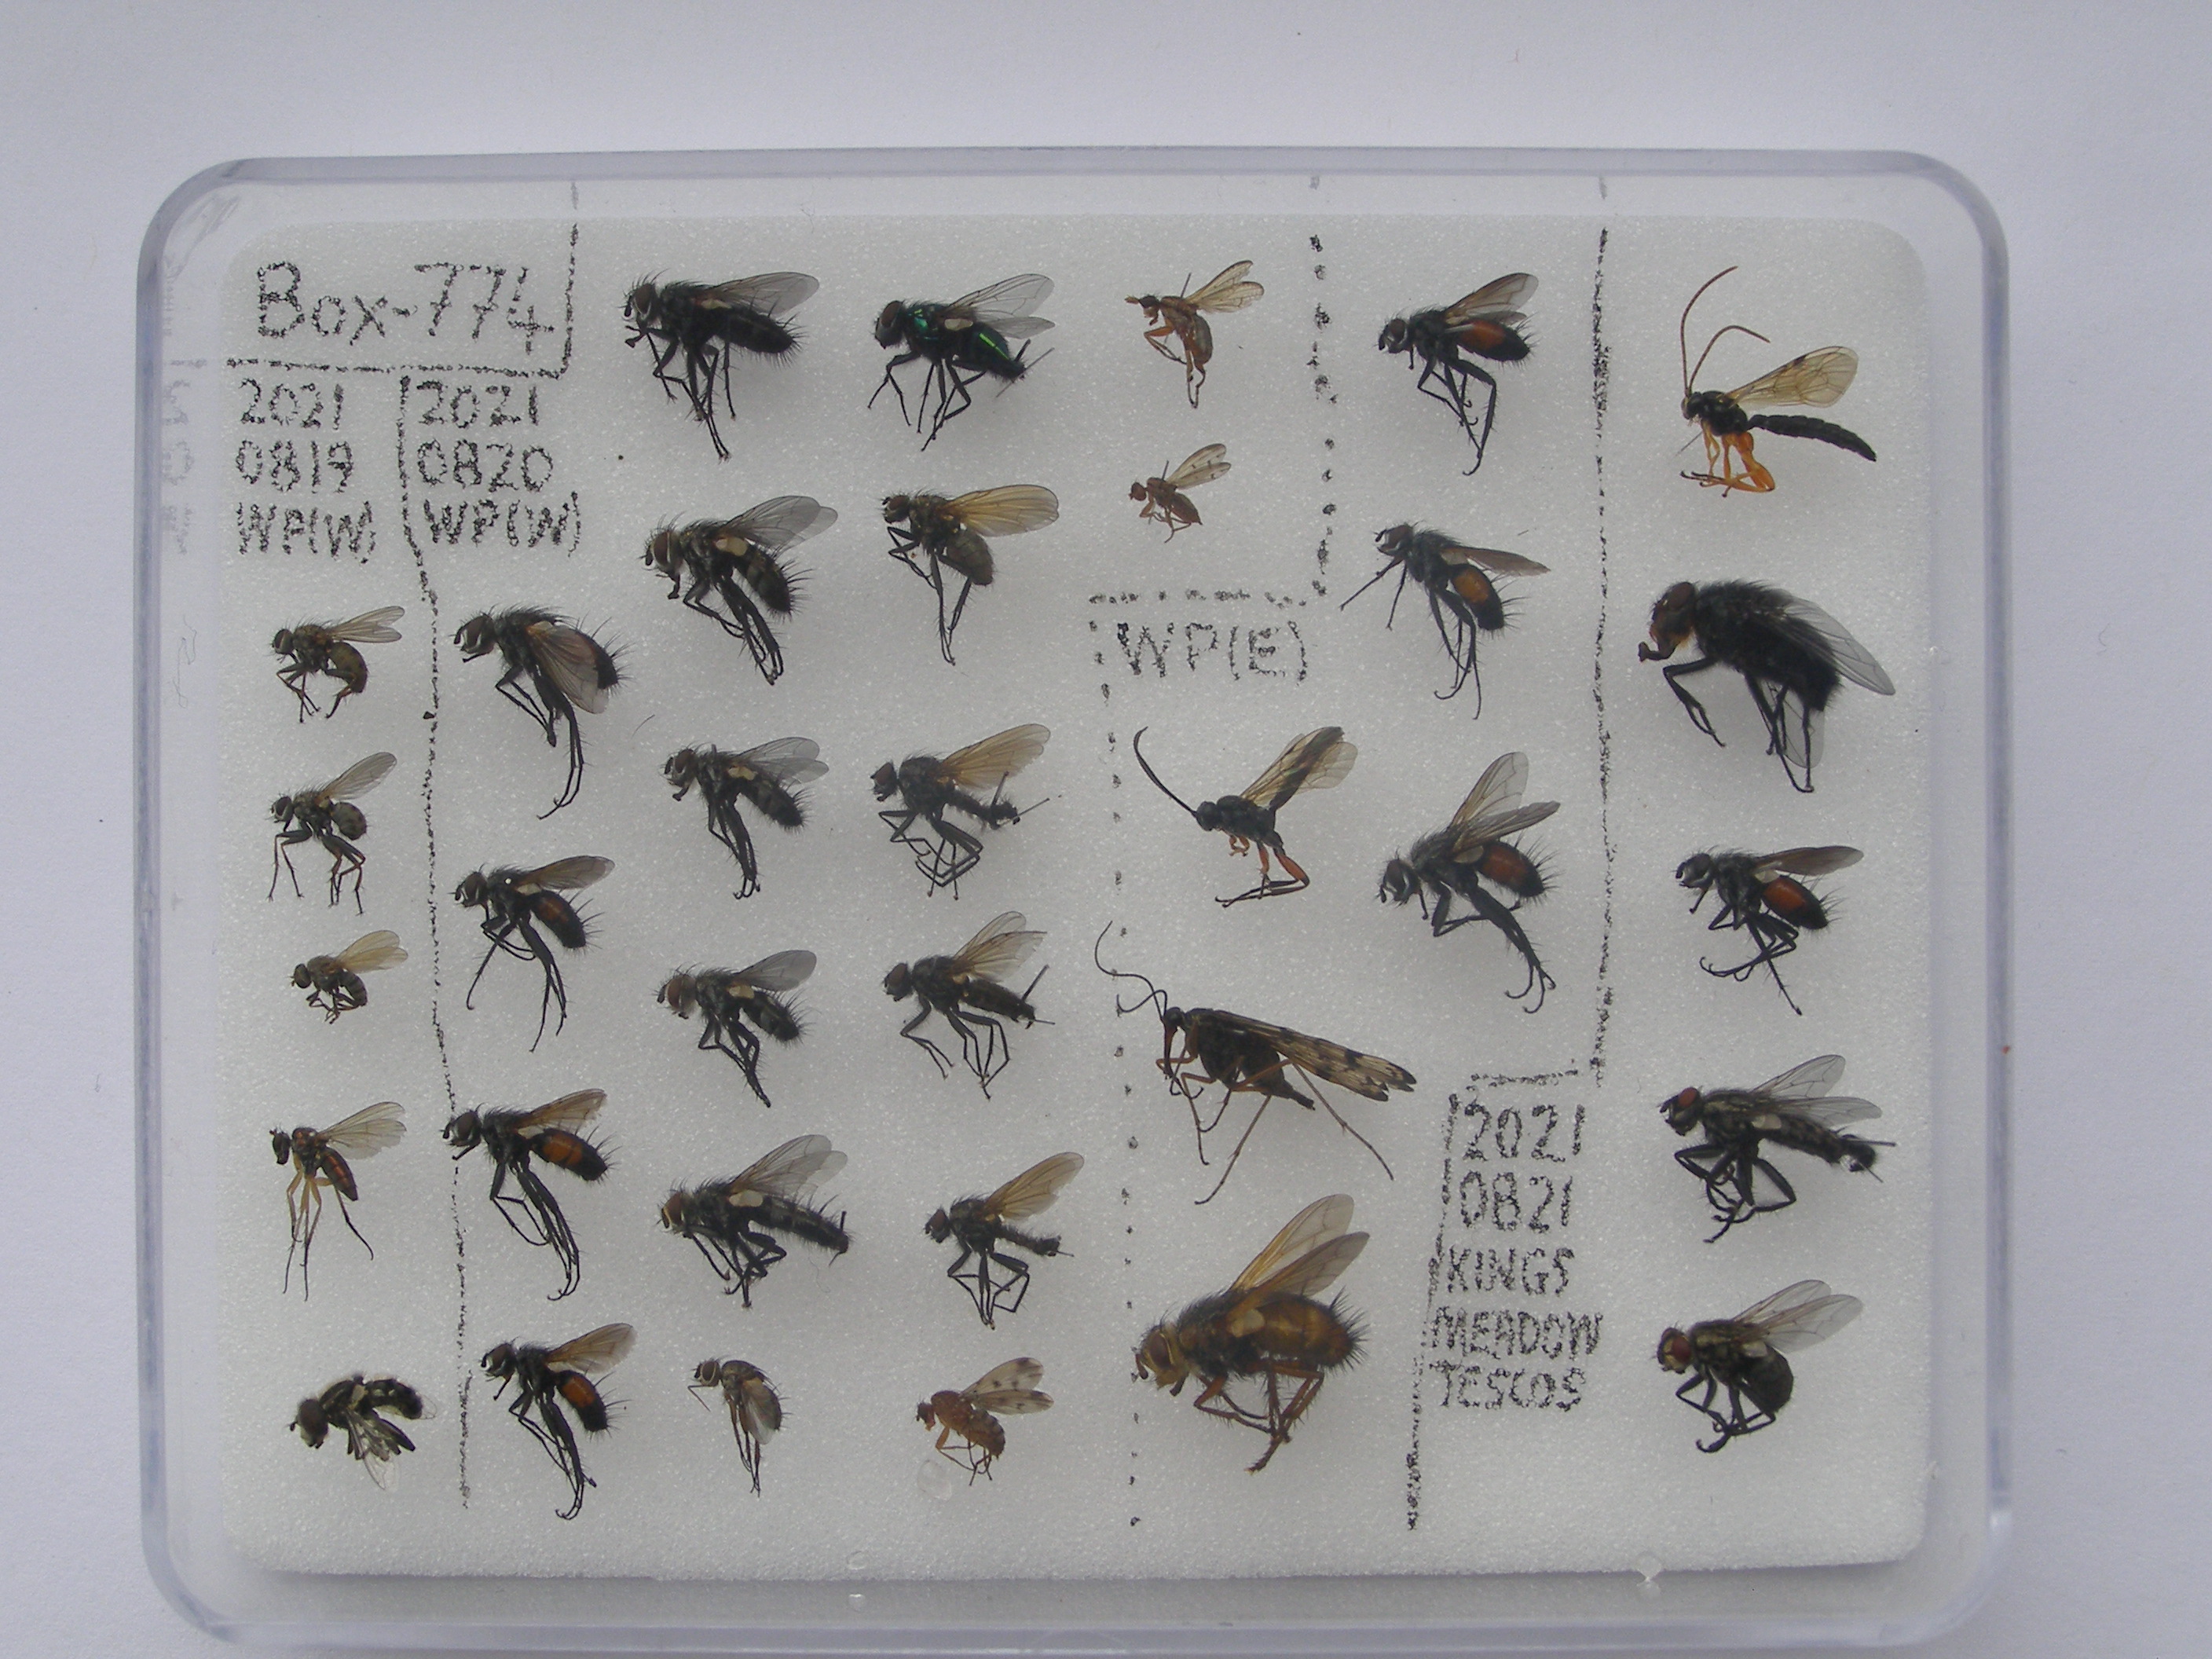 Box-774
2021
0819
WP(W)
2021
0820
WP(W)
WP(E)
2021
0821
KINGS
MEADOW
TESCOS